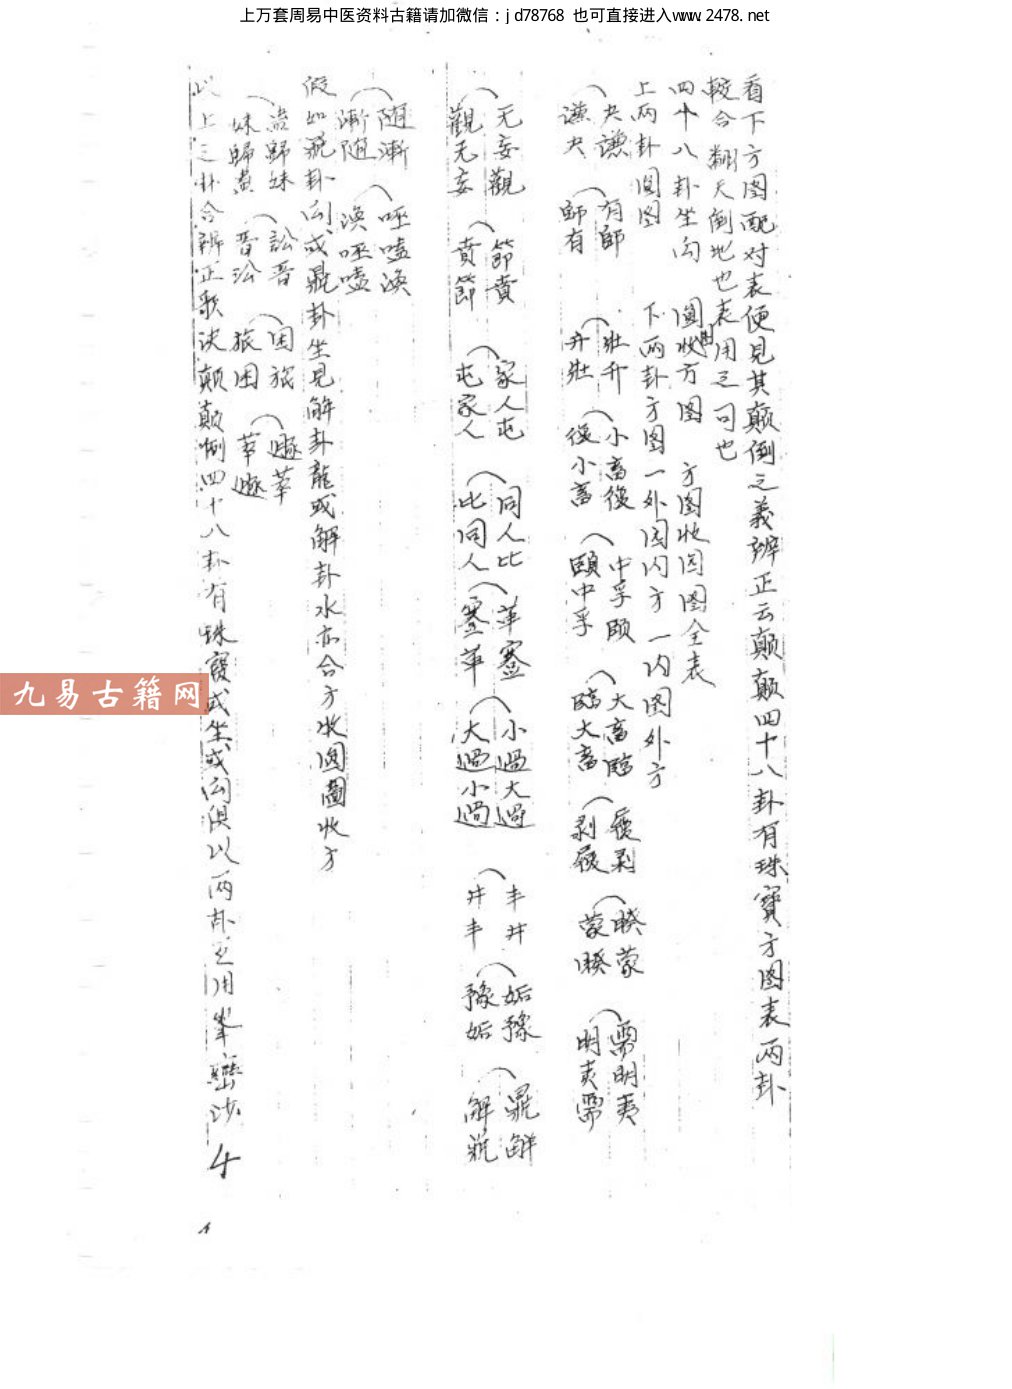 上万套周易中医资料古籍请加微信：jd78768 也可直接进入www.2478.net
看下方图配对表便見其颠倒之義辨正云颠颠四十八卦有珠寶方图表两卦
較合翻天倒地也表用之可也
四十八卦坐向 圓收方图 方图收圆图全表
上两卦圓图 下两卦方图一外圆内方一内圆外方
夬謙 有師 壯升 小畜復 中孚頤 大畜臨 履剥 睽蒙 需明夷
謙夬 師有 升壯 復小畜 頤中孚 臨大畜 剥履 蒙睽 明夷需
无妄觀 節賁 家人屯 同人比 革蹇 小過大過 丰井 姤豫 鼎解
觀无妄 賁節 屯家人 比同人 蹇革 大過小過 井丰 豫姤 解鼎
随漸 噬嗑渙
漸随 渙噬嗑
假如鼎卦向或鼎卦坐見解卦龍或解卦水亦合方收圓圖收方
蠱歸妹 訟晋 困旅 遯萃
妹歸蠱 晋訟 旅困 萃遯
以上之卦合辨正歌决颠颠倒四十八卦有珠寳或坐或向俱以两卦互用峯巒沙
4
九易古籍网